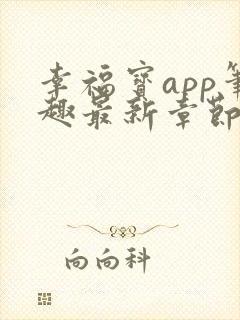 幸福宝app笔
趣最新章节
向向科